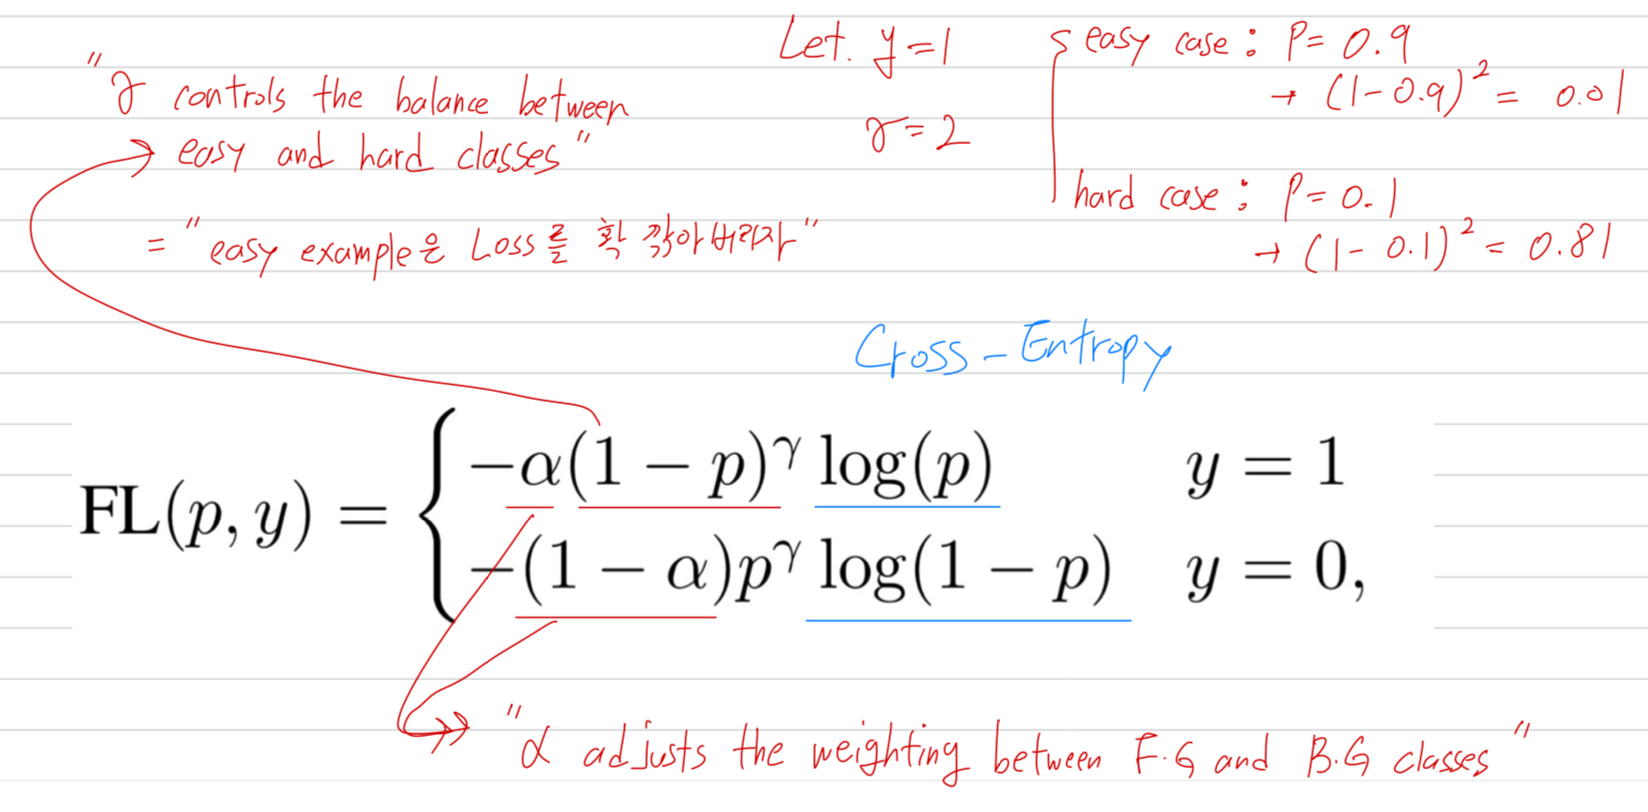 "γ controls the balance between
easy and hard classes"
= "easy example은 Loss를 확 깎아버리자"
Let. y=1
γ=2
easy case : P= 0.9
→ (1-0.9)² = 0.01
hard case : P= 0.1
→ (1-0.1)² = 0.81
Cross-Entropy
FL(p, y) = { −α(1 − p)^γ log(p) y = 1
−(1 − α)p^γ log(1 − p) y = 0,
"α adjusts the weighting between F.G and B.G classes"